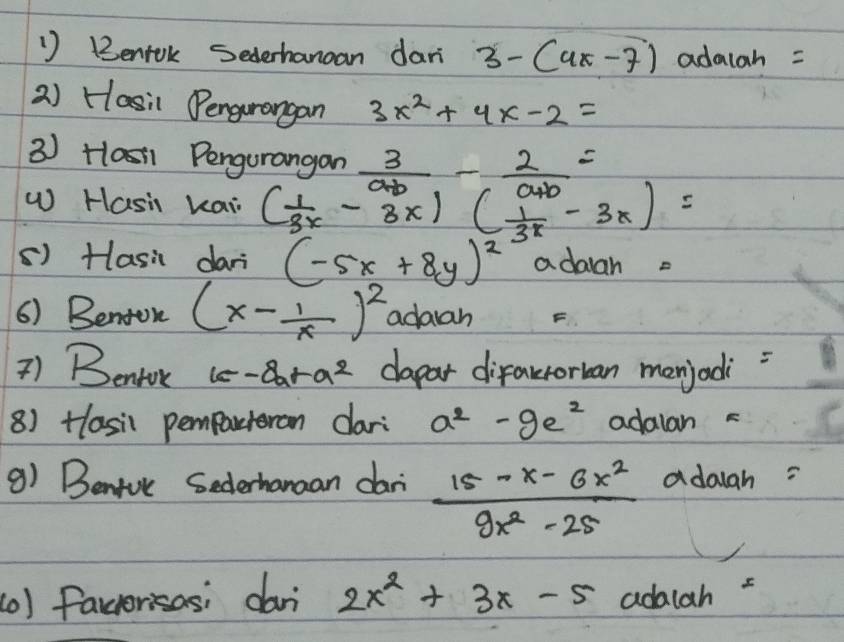 1) Bentuk Sederhanaan dari 3 - (4x - 7) adalah =
2) Hasil Pengurangan 3x² + 4x - 2 =
3) Hasil Pengurangan 3/(a+b) - 2/(a+b) =
4) Hasil kali (1/3x - 3x) (1/3x - 3x) =
5) Hasil dari (-5x + 8y)² adalah =
6) Bentuk (x - 1/x)² adalah =
7) Bentuk 15 - 8a + a² dapat difaktorkan menjadi =
8) Hasil pemfaktoran dari a² - 9e² adalah =
9) Bentuk Sederhanaan dari (15 - x - 6x²)/(9x² - 25) adalah =
10) faktorisasi dari 2x² + 3x - 5 adalah =